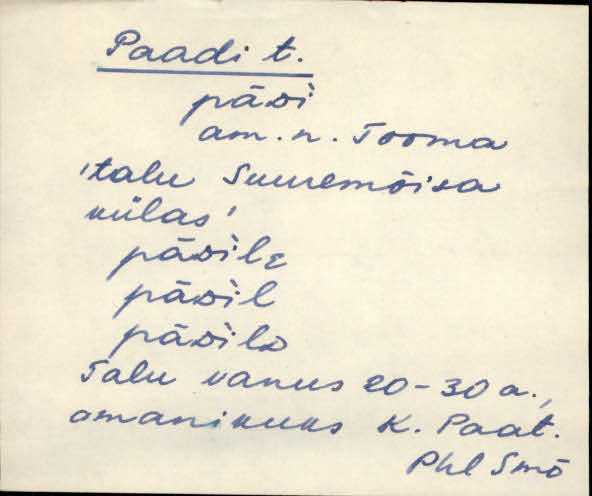 Paadi t.
pāᴅi
am. n. Tooma
'talu Suuremõisa
külas'
pāᴅilɛ
pāᴅil
pāᴅilᴅ
Talu vanus 20-30 a.,
omanikuks K. Paat.
Phl Smõ